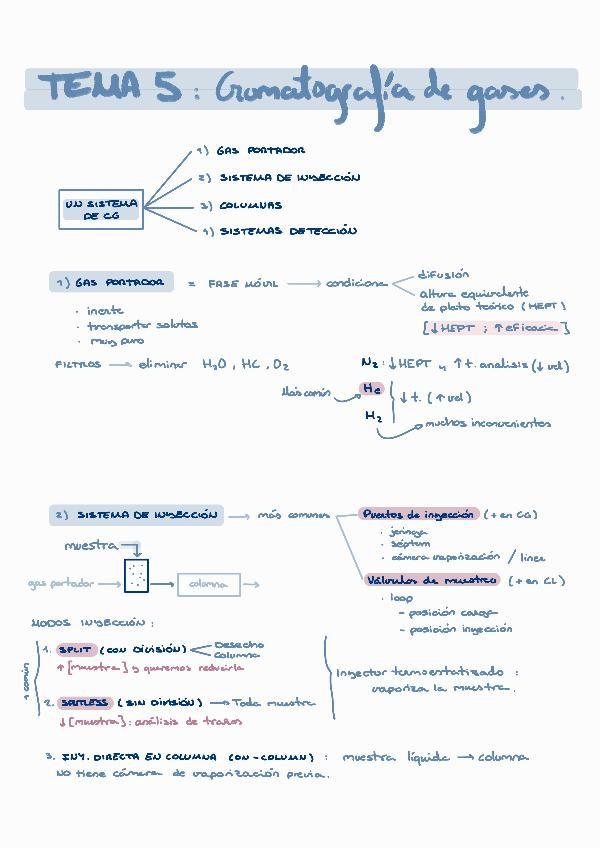 TEMA 5: Cromatografía de gases.
1) GAS PORTADOR
2) SISTEMA DE INYECCIÓN
UN SISTEMA
DE CG
3) COLUMNAS
4) SISTEMAS DETECCIÓN
1) GAS PORTADOR = FASE MÓVIL → condiciona
difusión
altura equivalente
de plato teórico (HEPT)
[↓HEPT ; ↑eficacia]
· inerte
· transportar solutos
· muy puro
FILTROS → eliminar H₂O, HC, O₂
N₂: ↓HEPT y ↑t. análisis (↓vel)
Más común He
↓t. (↑vel)
H₂
muchos inconvenientes
2) SISTEMA DE INYECCIÓN → más comunes
Puertos de inyección (+ en CG)
· jeringa
· séptum
· cámara vaporización / liner
Válvulas de muestra (+ en CL)
· loop
- posición carga
- posición inyección
muestra
gas portador → columna →
MODOS INYECCIÓN:
+ común
1. SPLIT (CON DIVISIÓN)
Desecho
Columna
↑[muestra] y queremos reducirla
2. SPLITLESS (SIN DIVISIÓN) → Toda muestra
↓[muestra]: análisis de trazas
Inyector termostatizado:
vaporiza la muestra.
3. INY. DIRECTA EN COLUMNA (ON-COLUMN): muestra líquida → columna
NO tiene cámara de vaporización previa.